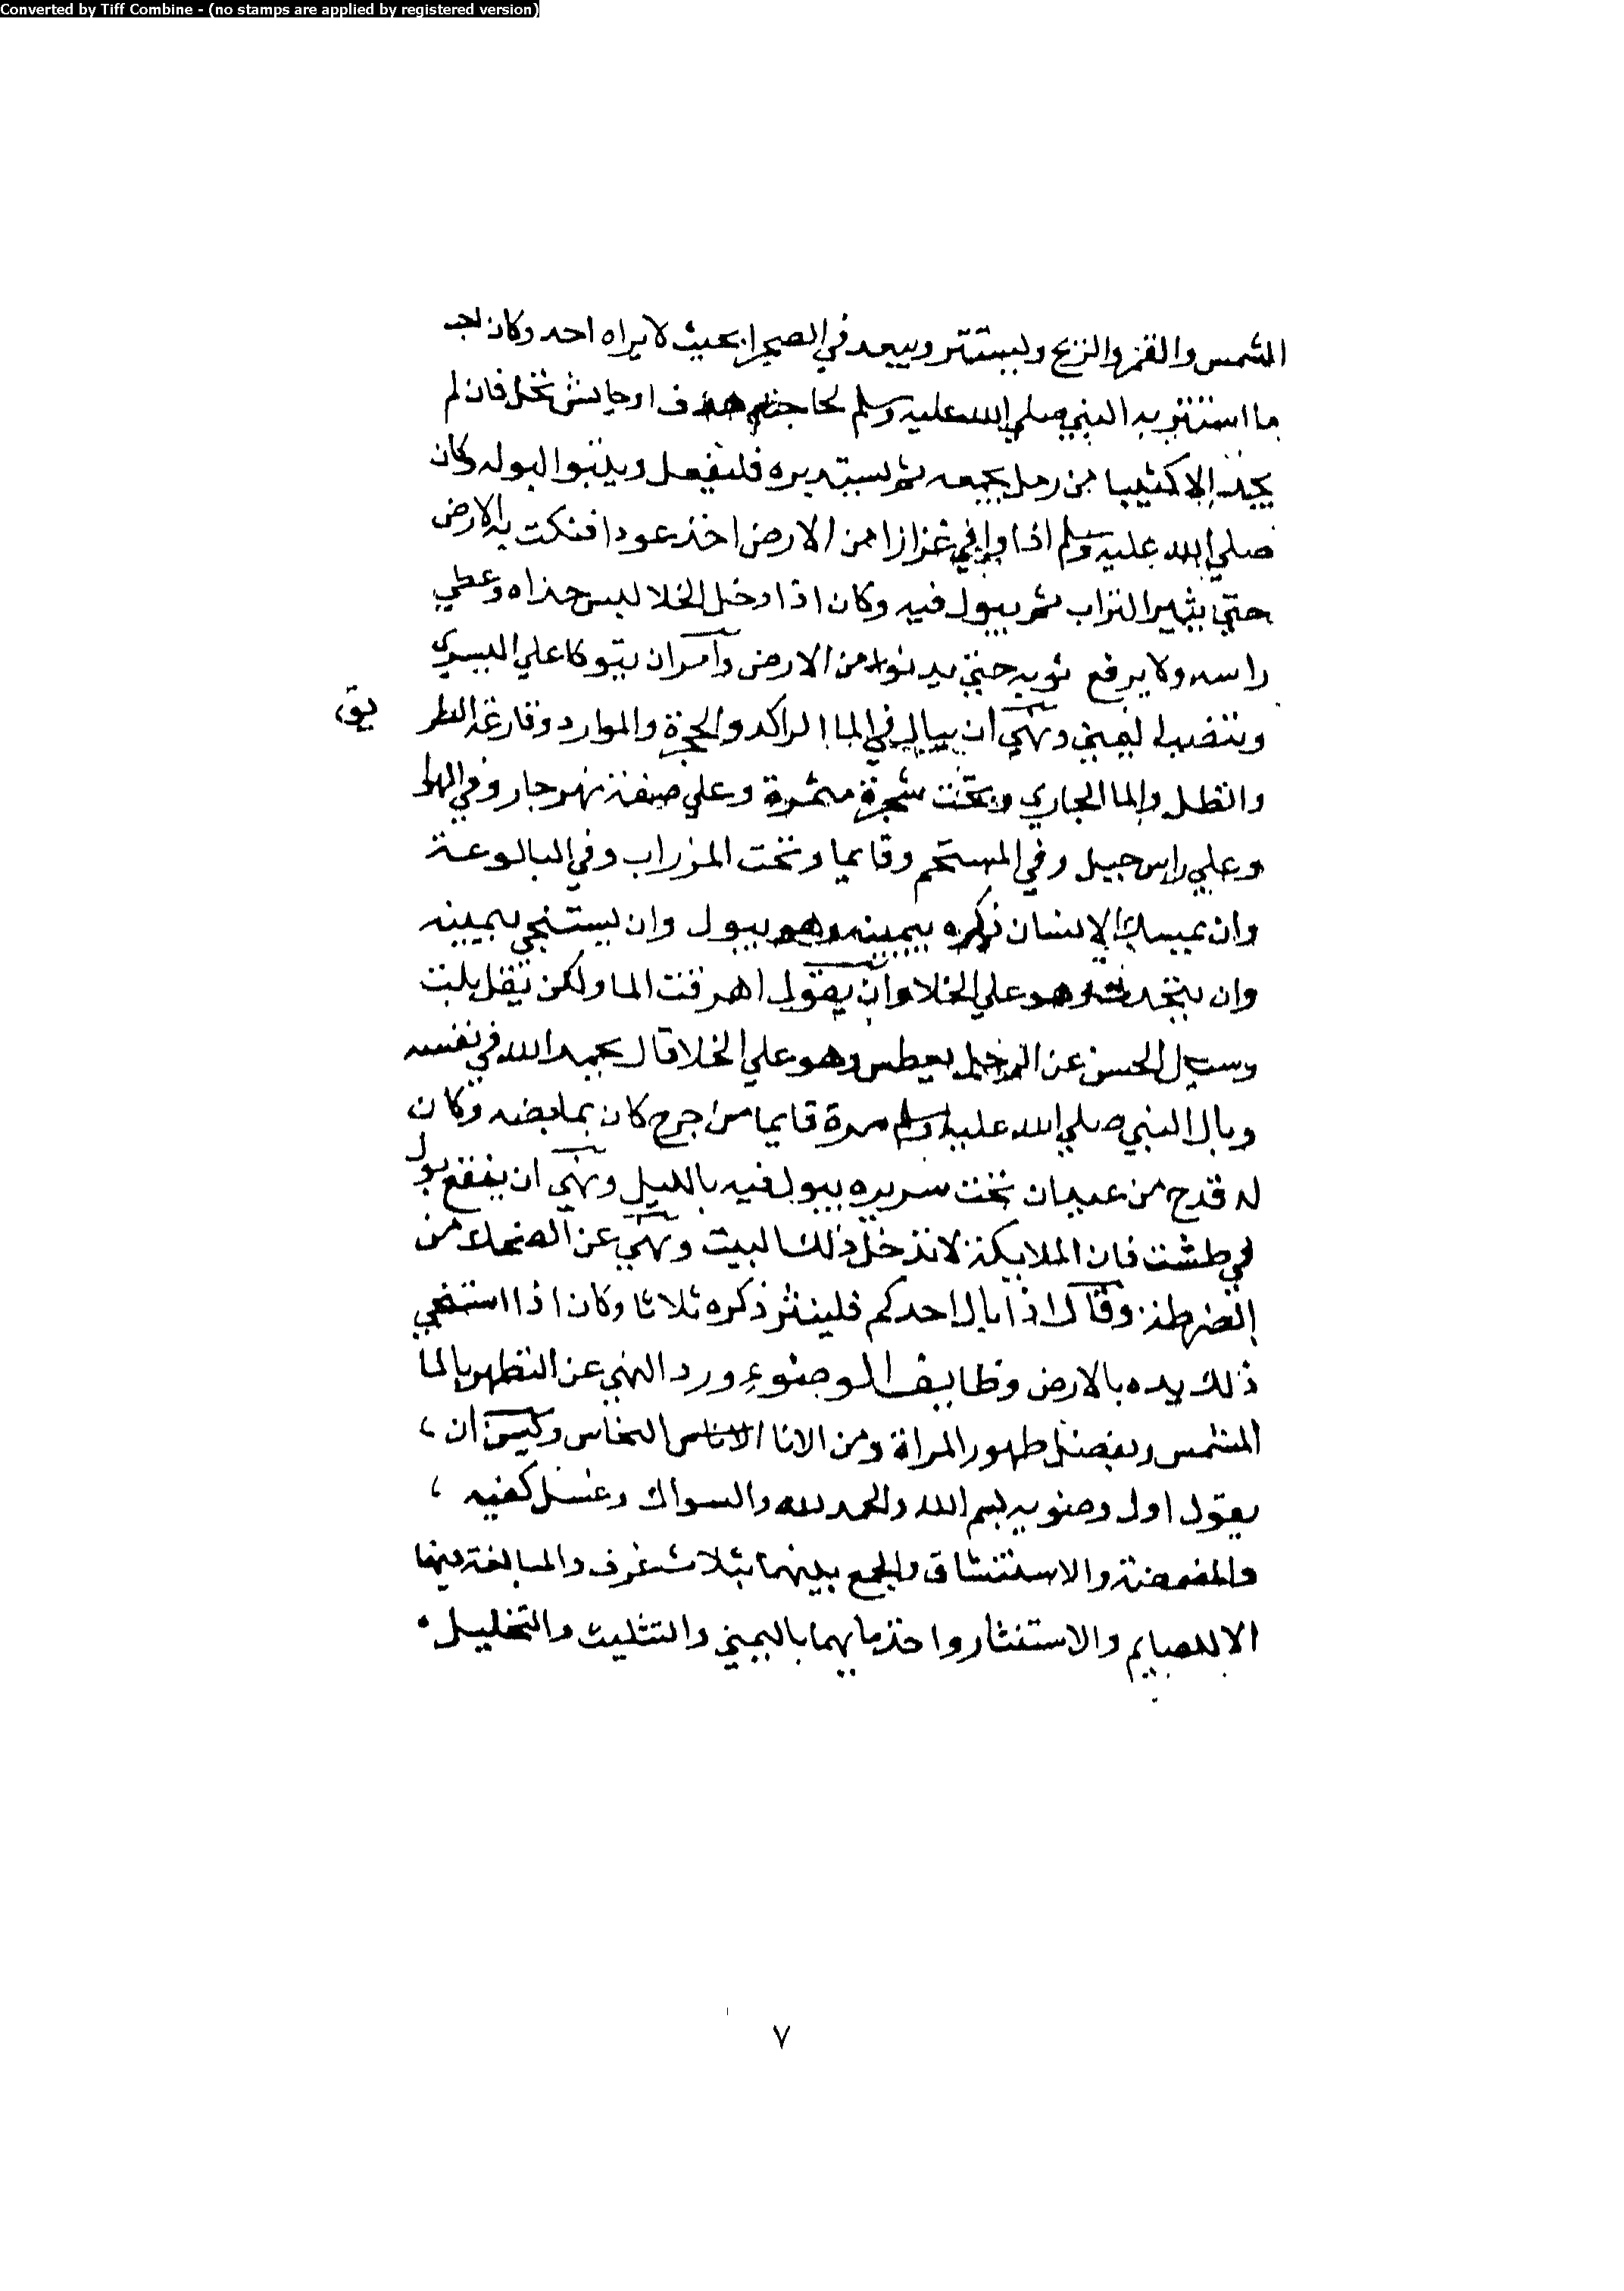 Converted by Tiff Combine - (no stamps are applied by registered version)
الشمس والقمر والريح وليستتر ويبعد في الصحرا بحيث لا يراه احد وكان احب
ما استتر به النبي صلي الله عليه وسلم لحاجته هدف او حايش نخل فان لم
يجد الا كثيبا من رمل يجمعه ثم يستدبره فليفعل ويتبوا لبوله وكان
صلي الله عليه وسلم اذا وافي عزازا من الارض اخذ عودا فنكت به الارض
حتي يثير التراب ثم يبول فيه وكان اذا دخل الخلا لبس حذاه وغطي
راسه ولا يرفع ثوبه حتي يدنوا من الارض وامر ان يتوكا علي اليسري
وينصب اليمني ونهي ان يبال في الما الراكد والجحرة والموارد وقارعة الطر يق
والظل والما الجاري وتحت شجرة مثمرة وعلي ضفة نهر جار وفي الهوا
وعلي راس جبل وفي المستحم وقايما وتحت المزراب وفي البالوعة
وان يمسك الانسان ذكره بيمينه وهو يبول وان يستنجي بيمينه
وان يتحدث وهو علي الخلا وان يقول اهرقت الما ولكن يقل بلت
وسيل الحسن عن الرجل يعطس وهو علي الخلا قال يحمد الله في نفسه
وبال النبي صلي الله عليه وسلم مرة قايما من جرح كان بمابضه وكان
له قدح من عيدان تحت سريره يبول فيه بالليل ونهي ان ينقع بول
في طشت فان الملايكة لا تدخل ذلك البيت ونهي عن الضحك من
الضرطة وقال اذا بال احدكم فلينثر ذكره ثلاثا وكان اذا استنجي
ذلك يده بالارض وظايف الوضوء ورد النهي عن التطهر بالما
المشمس وبفضل طهور المراة ومن الانا النحاس ويسن ان ،
يقول اول وضويه بسم الله والحمد لله والسواك وغسل كفيه ،
والمضمضة والاستنشاق والجمع بينهما بثلاث غرف والمبالغة فيهما
الا للصايم والاستنثار واخذ مايهما باليمني والتثليث والتخليل .
٧